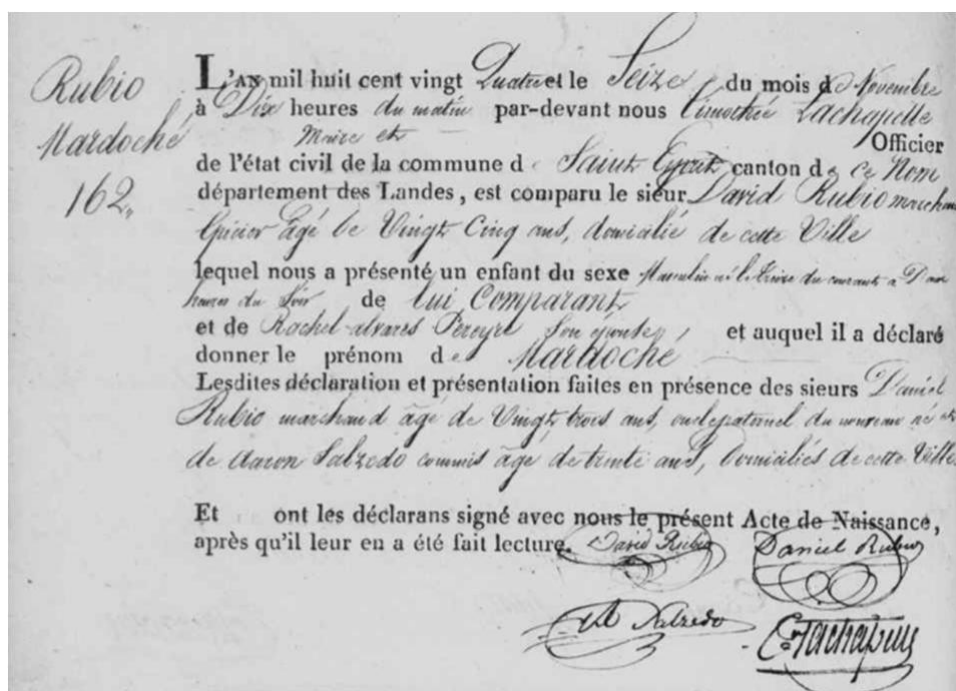 Rubio
Mardoché
162.
L'AN mil huit cent vingt Quatre et le Seize du mois de Novembre
à Dix heures du matin par-devant nous Timothée Lachapelle
Maire et Officier
de l'état civil de la commune de Saint Esprit canton de ce Nom
département des Landes, est comparu le sieur David Rubio marchand
Epicier âgé de Vingt Cinq ans, domicilié de cette Ville
lequel nous a présenté un enfant du sexe Masculin né le treize du courant à
heures du Soir de lui Comparant,
et de Rachel alvares Pereyre Son epouse, et auquel il a déclaré
donner le prénom de Mardoché
Lesdites déclaration et présentation faites en présence des sieurs Daniel
Rubio marchand âgé de Vingt trois ans, oncle paternel du nouveau né et
de Aaron Salzedo commis âgé de trente ans, Domiciliés de cette Ville
Et ont les déclarans signé avec nous le présent Acte de Naissance,
après qu'il leur en a été fait lecture.
David Rubio
Daniel Rubio
A Salzedo
Lachapelle